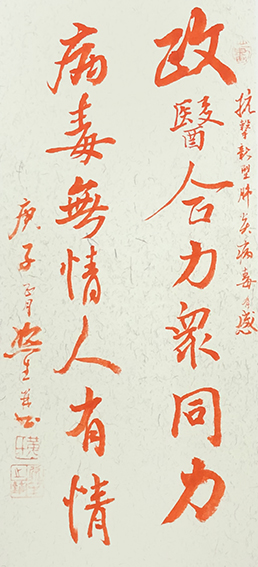 抗擊新型肺炎病毒有感
政醫合力衆同力
病毒無情人有情
庚子